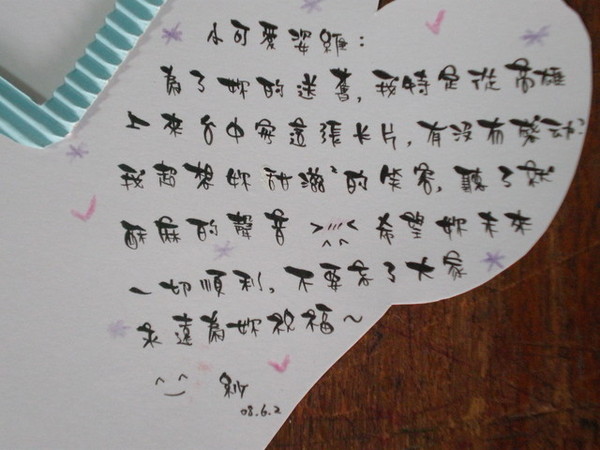 小可愛姿雖：
為了妳的送舊，我特定從高雄
上來台中寫這張卡片，有沒有感動？
我超想妳甜滋滋的笑容，聽了就
酥麻的聲音 >///< 希望妳未來
一切順利，不要忘了大家
永遠為妳祝福～
^_^ 紗
08.6.2